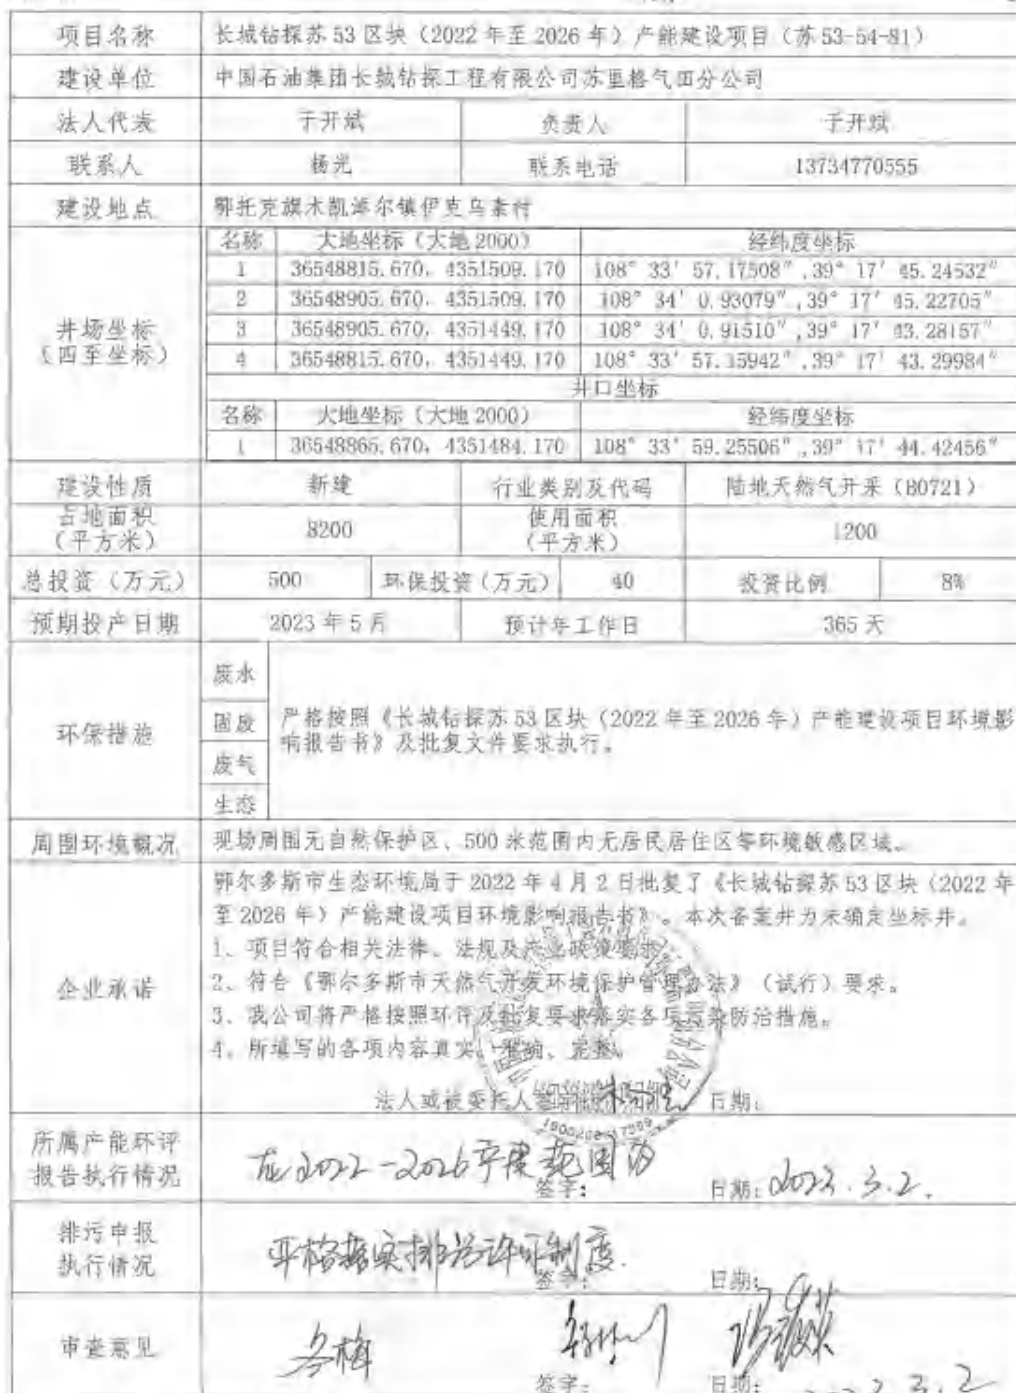 项目名称 长城钻探苏53区块（2022年至2026年）产能建设项目（苏53-54-81）
建设单位 中国石油集团长城钻探工程有限公司苏里格气田分公司
法人代表 于开斌 负责人 于开斌
联系人 杨光 联系电话 13734770555
建设地点 鄂托克旗木凯淖尔镇伊克乌素村
井场坐标
（四至坐标）
名称 大地坐标（大地2000） 经纬度坐标
1 36548815.670，4351509.170 108° 33′ 57.17508″,39° 17′ 45.24532″
2 36548905.670，4351509.170 108° 34′ 0.93079″,39° 17′ 45.22705″
3 36548905.670，4351449.170 108° 34′ 0.91510″,39° 17′ 43.28157″
4 36548815.670，4351449.170 108° 33′ 57.15942″,39° 17′ 43.29984″
井口坐标
名称 大地坐标（大地2000） 经纬度坐标
1 36548865.670，4351484.170 108° 33′ 59.25506″,39° 17′ 44.42456″
建设性质 新建 行业类别及代码 陆地天然气开采（B0721）
占地面积
（平方米） 8200 使用面积
（平方米） 1200
总投资（万元） 500 环保投资（万元） 40 投资比例 8%
预期投产日期 2023年5月 预计年工作日 365天
环保措施
废水
固废
废气
生态
严格按照《长城钻探苏53区块（2022年至2026年）产能建设项目环境影
响报告书》及批复文件要求执行。
周围环境概况 现场周围无自然保护区、500米范围内无居民居住区等环境敏感区域。
企业承诺
鄂尔多斯市生态环境局于2022年4月2日批复了《长城钻探苏53区块（2022年
至2026年）产能建设项目环境影响报告书》。本次备案井为未确定坐标井。
1、项目符合相关法律、法规及产业政策要求。
2、符合《鄂尔多斯市天然气开发环境保护管理办法》（试行）要求。
3、我公司将严格按照环评及批复要求落实各项污染防治措施。
4、所填写的各项内容真实、准确、完整。
法人或被委托人签字 日期：
所属产能环评
报告执行情况
在2022-2026年度范围内
签字： 日期：2023.3.2.
排污申报
执行情况
严格落实排污许可制度.
签字： 日期：
审查意见
签字： 日期： 3.2